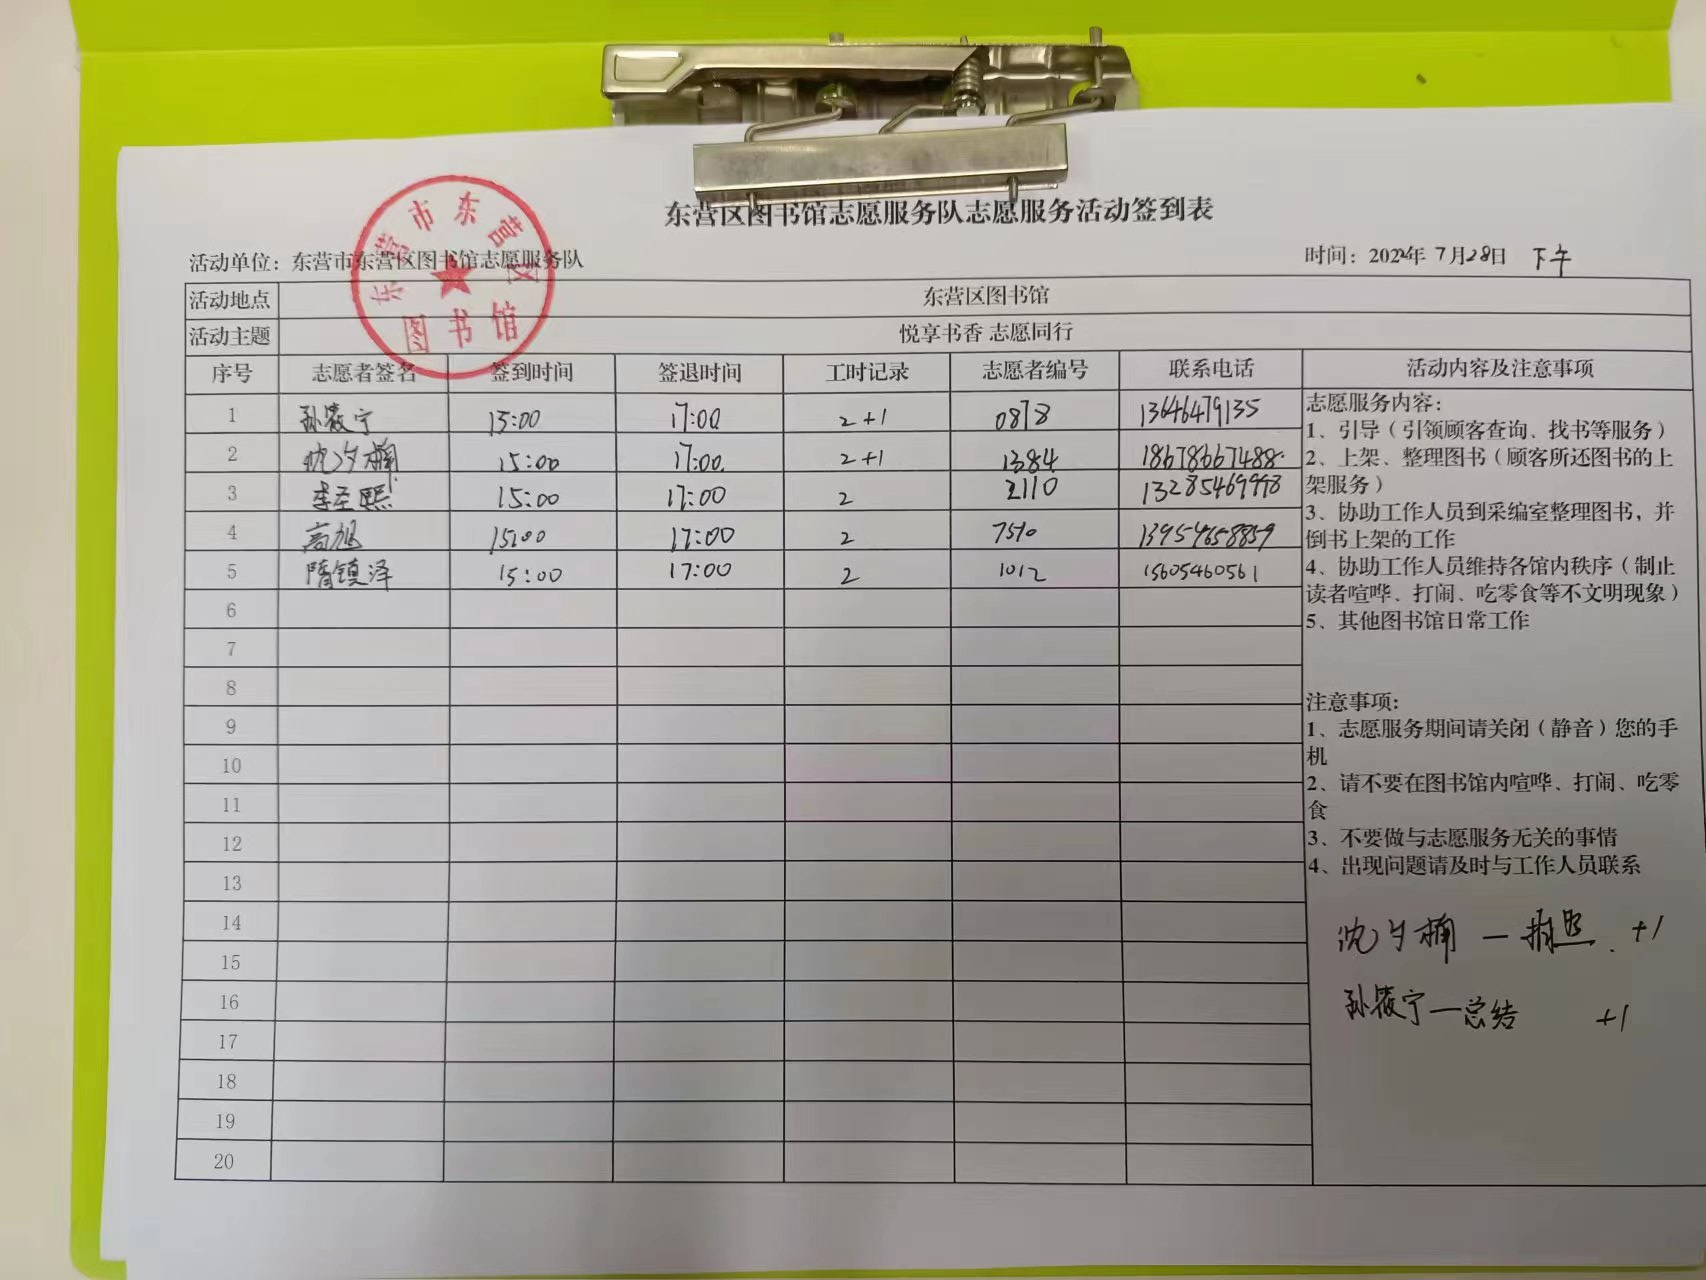 东营区图书馆志愿服务队志愿服务活动签到表
活动单位：东营市东营区图书馆志愿服务队 时间：2022年 7月28日 下午
东营市东营区
图书馆
活动地点 东营区图书馆
活动主题 悦享书香 志愿同行
序号 志愿者签名 签到时间 签退时间 工时记录 志愿者编号 联系电话 活动内容及注意事项
1 孙筱宁 15:00 17:00 2+1 0878 13646479135
2 沈夕楠 15:00 17:00 2+1 1384 18678667488
3 李圣熙 15:00 17:00 2 2110 13285469998
4 高旭 15:00 17:00 2 7510 13954658859
5 隋镇泽 15:00 17:00 2 1012 15605460561
6
7
8
9
10
11
12
13
14
15
16
17
18
19
20
志愿服务内容：
1、引导（引领顾客查询、找书等服务）
2、上架、整理图书（顾客所还图书的上
架服务）
3、协助工作人员到采编室整理图书，并
倒书上架的工作
4、协助工作人员维持各馆内秩序（制止
读者喧哗、打闹、吃零食等不文明现象）
5、其他图书馆日常工作
注意事项：
1、志愿服务期间请关闭（静音）您的手
机
2、请不要在图书馆内喧哗、打闹、吃零
食
3、不要做与志愿服务无关的事情
4、出现问题请及时与工作人员联系
沈夕楠 — 拍照 +1
孙筱宁 — 总结 +1